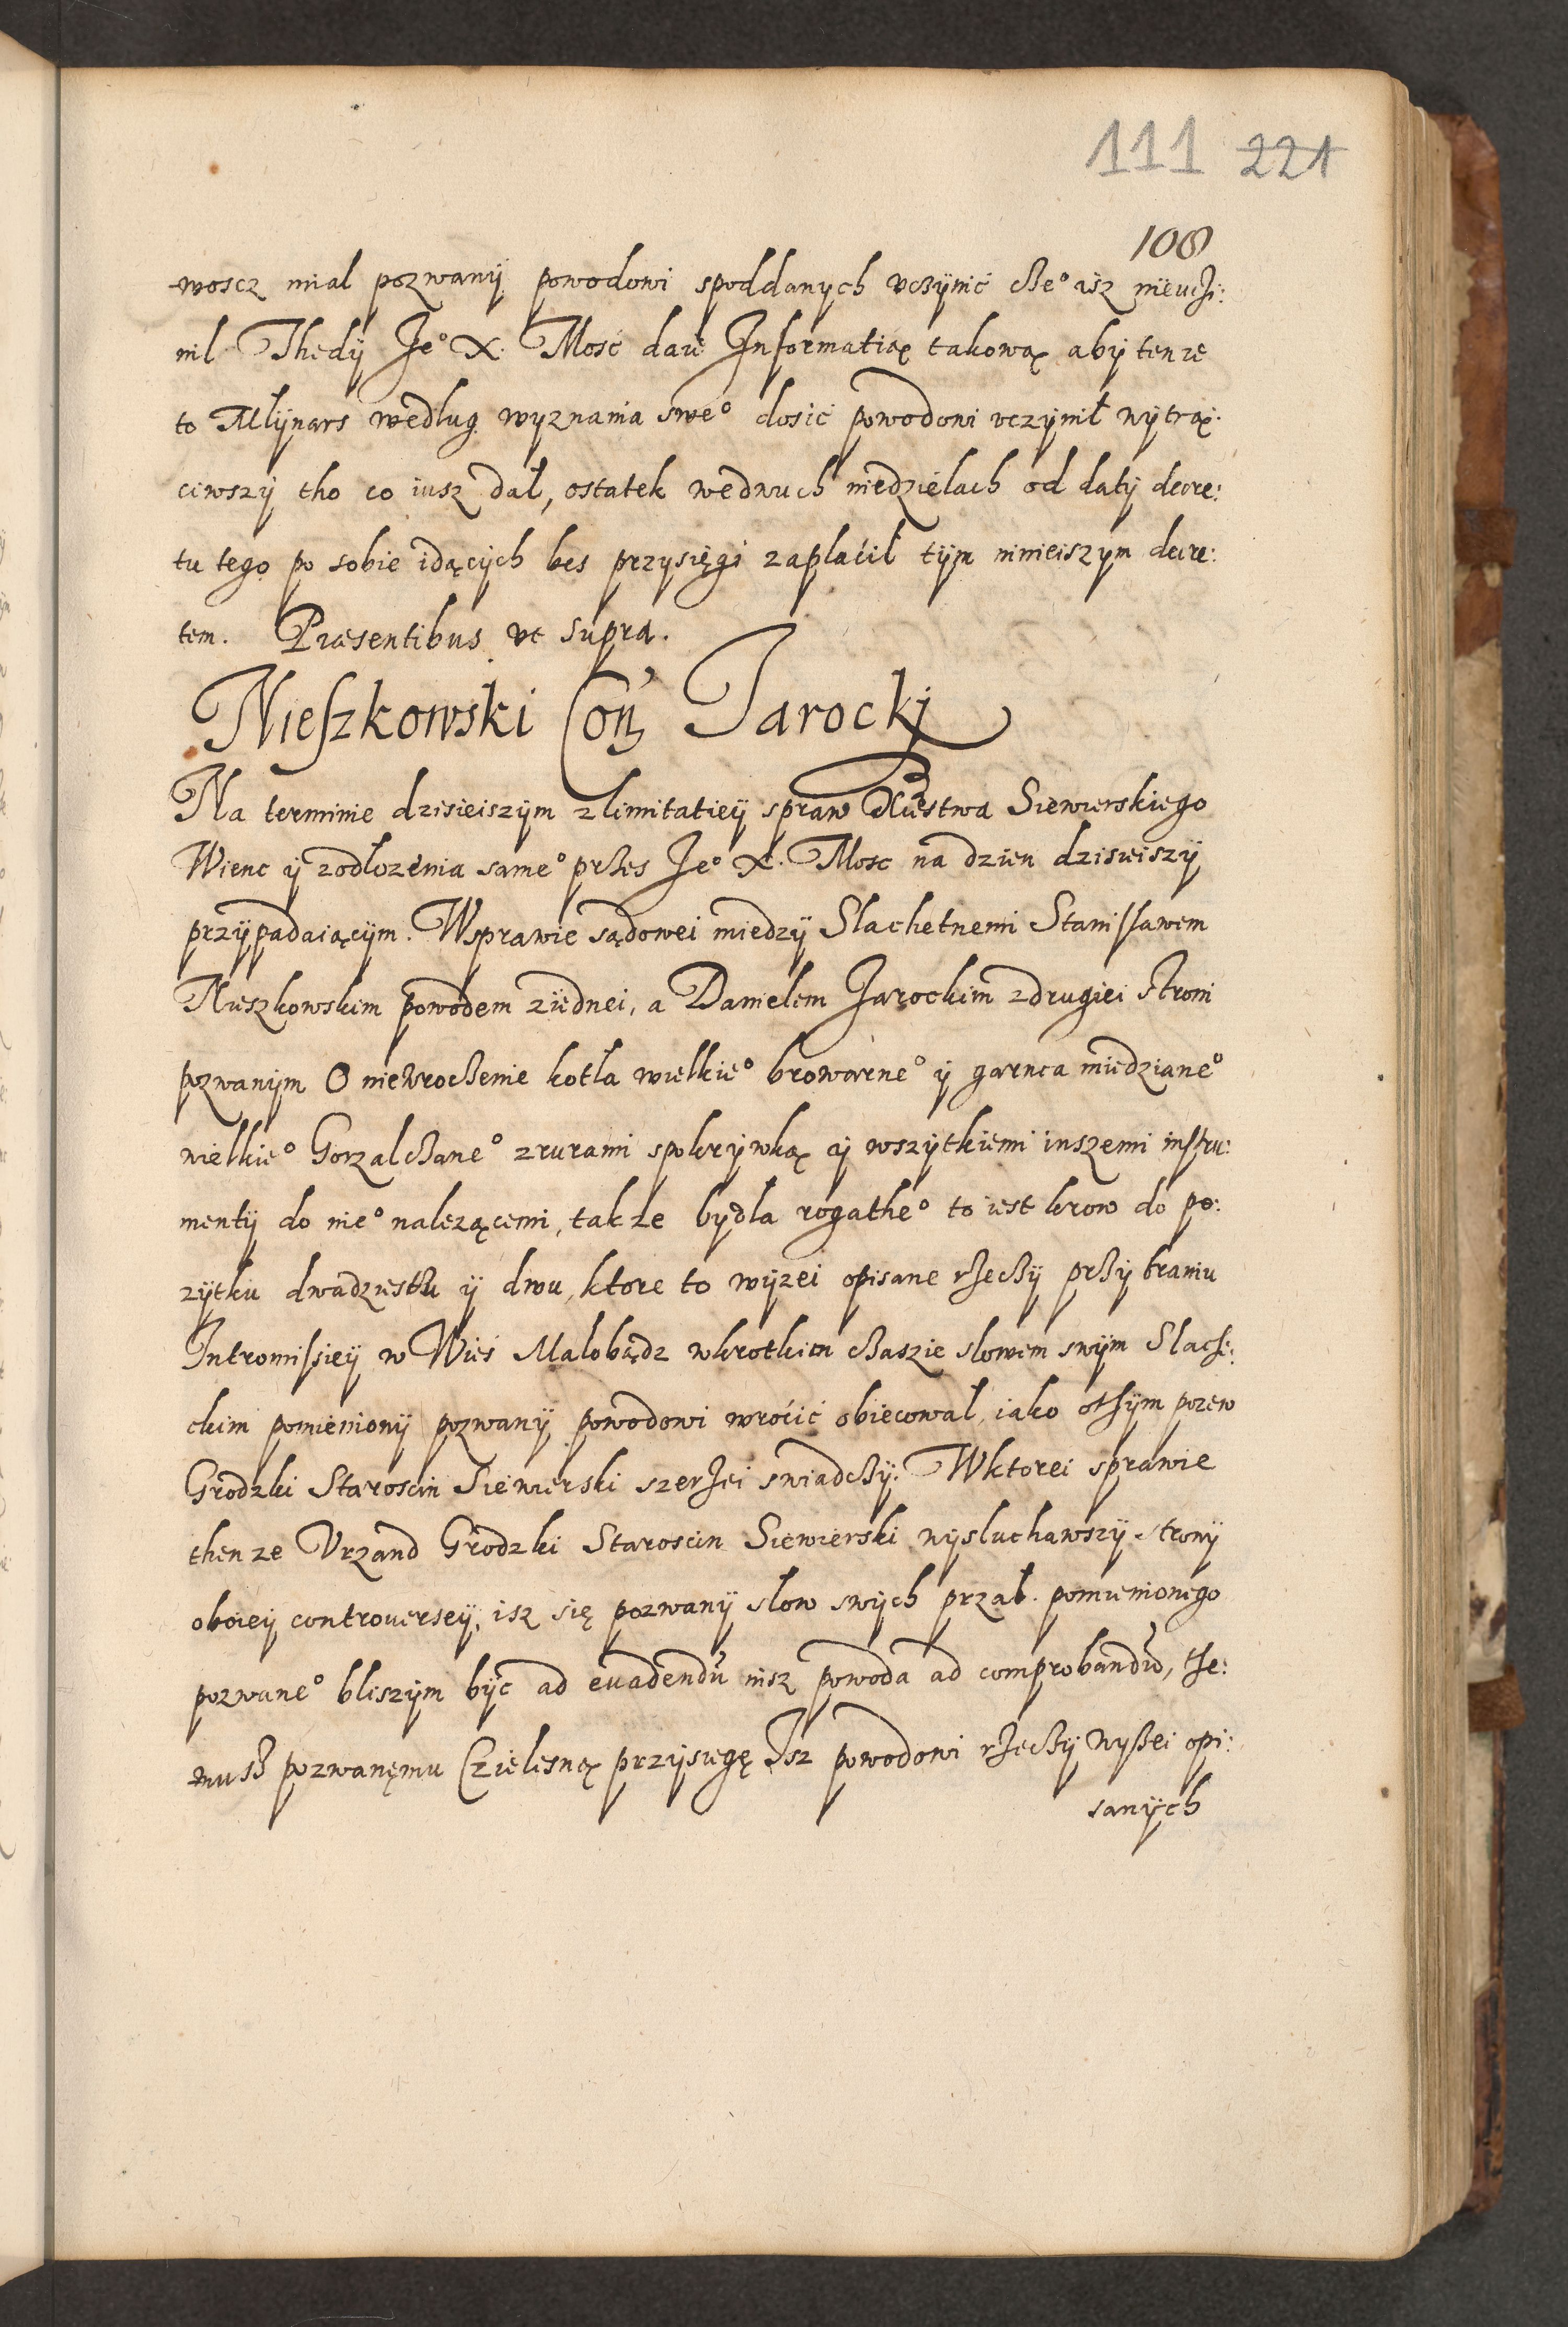 111 221
108
woscz mial pozwanÿ powodowi spoddanych vczÿnić cze° isz nieuczi:
nil Thedÿ Je° X. Mosć daie Informatią takową abÿ tenze
to Młÿnars według wyznania swe° dosić powodowi vczÿnił wÿtrą:
ciwszÿ tho co iusz dał, ostatek wedwuch niedzielach od datÿ decre:
tu tego po sobie idącÿch bes przysięgi zapłaćił tÿm ninieiszym decre:
tem. Præsentibus vt supra.
Nieszkowski Con Jarockj
Na terminie dzisieiszÿm zlimitatieÿ spraw Xiestwa Siewierskiego
Wienc ÿ zodłozenia same° przes Je° X. Mosc na dzien dzisieiszÿ
przÿpadaiącÿm. Wsprawie sądowei miedzÿ Slachetnemi Stanisławem
Nieszkowskim powodem ziednei, a Danielem Jarockim zdrugiei stroni
pozwanÿm O niewroczenie kotła wielkie° browarne° ÿ garnca miedziane°
wielkie° Gorzalczane° zrurami spokrÿwką ÿ wszÿtkiemi inszemi instru:
mentÿ do nie° nalezącemi, takze bydła rogathe° to iest krow do po:
zÿtku dwadziestu ÿ dwu, ktore to wÿzei opisane rzeczÿ przÿ braniu
Intromissieÿ w Wieś Małobądz wkrotkim czaszie słowem swÿm Slach:
ckim pomienionÿ pozwanÿ powodowi wrócić obiecował, iako othÿm pozew
Grodzki Staroscin Siewierski szerzei swiadczÿ: Wktorei sprawie
thenze Vrzand Grodzki Staroscin Siewierski wysluchawszÿ stronÿ
oboieÿ controuerseÿ, isz się pozwanÿ słow swÿch przał. pomienionego
pozwane° bliszÿm bÿc ad euadendũ nisz powoda ad comprobandũ, the:
musz pozwanęmu Czielesną przÿsiegę Isz powodowi rzeczÿ wyszei opi:
sanÿch